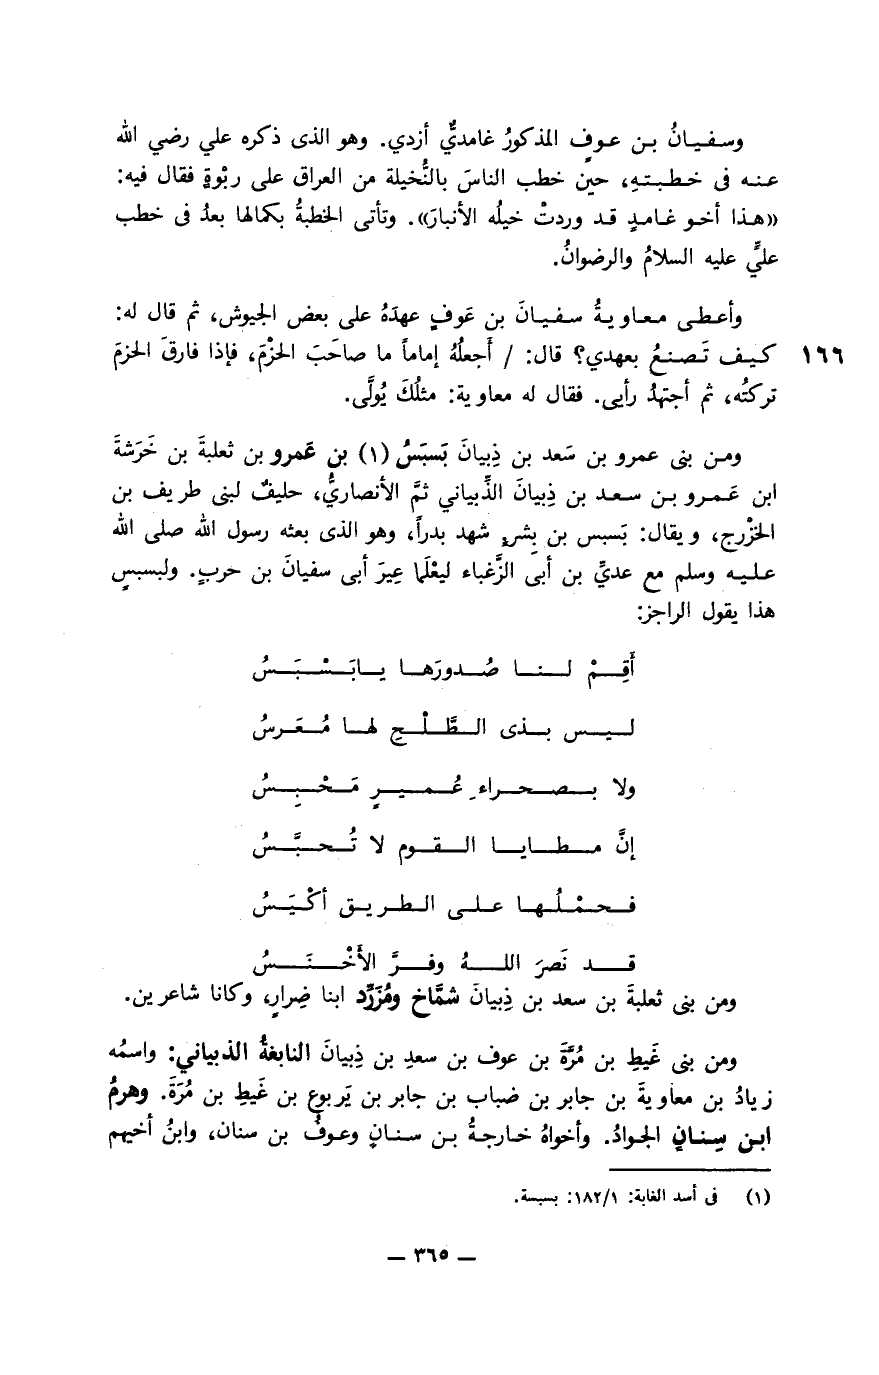 وسفيانُ بن عوفٍ المذكورُ غامديٌّ أزدي. وهو الذى ذكره علي رضي الله
عنه فى خطبتهِ، حين خطب الناسَ بالنُّخيلة من العراق على ربْوةٍ فقال فيه:
«هذا أخو غامدٍ قد وردتْ خيلُه الأنبارَ». وتأتى الخطبةُ بكمالها بعدُ فى خطب
عليٍّ عليه السلامُ والرضوانُ.
وأعطى معاويةُ سفيانَ بن عَوفٍ عهدَهُ على بعض الجيوش، ثم قال له:
١٦٦ كيف تَصنعُ بعهدي؟ قال: / أَجعلُهُ إماماً ما صاحَبَ الحَزْمَ، فإذا فارقَ الحزمَ
تركتُه، ثم أجتهدُ رأيى. فقال له معاوية: مثلُكَ يُولَّى.
ومن بنى عمرو بن سَعد بن ذِبيانَ بَسبَسُ (١) بن عَمرو بن ثعلبةَ بن خَرَشةَ
ابن عَمرو بن سعد بن ذِبيانَ الذِّبياني ثمَّ الأنصاريُّ، حليفٌ لبنى طريف بن
الخزْرج، ويقال: بَسبس بن بِشرٍ شهد بدراً، وهو الذى بعثه رسول الله صلى الله
عليه وسلم مع عديِّ بن أبى الزَّغباء ليعْلَما عِيرَ أبى سفيانَ بن حربٍ. ولبسبسٍ
هذا يقول الراجز:
أَقِمْ لنا صُدورَها يابَسْبَسُ
ليس بذى الطَّلْحِ لها مُعَرسُ
ولا بصحراءِ عُميرٍ مَحْبِسُ
إنَّ مطايا القوم لا تُحبَّسُ
فحمْلُها على الطريق أكْيَسُ
قد نَصرَ اللهُ وفرَّ الأَخْنَسُ
ومن بنى ثعلبةَ بن سعد بن ذِبيانَ شمَّاخ ومُزَرِّد ابنا ضِرارٍ، وكانا شاعرين.
ومن بنى غَيطِ بن مُرَّةَ بن عوف بن سعدِ بن ذِبيانَ النابغةُ الذبياني: واسمُه
زيادُ بن معاويةَ بن جابر بن ضباب بن جابر بن يَربوع بن غَيطِ بن مُرَةَ. وهرمُ
ابن سِنانٍ الجوادُ. وأخواهُ خارجةُ بن سنانٍ وعوفُ بن سنان، وابنُ أخيهم
(١) فى أسد الغابة: ١٨٢/١: بسبسة.
— ٣٦٥ —